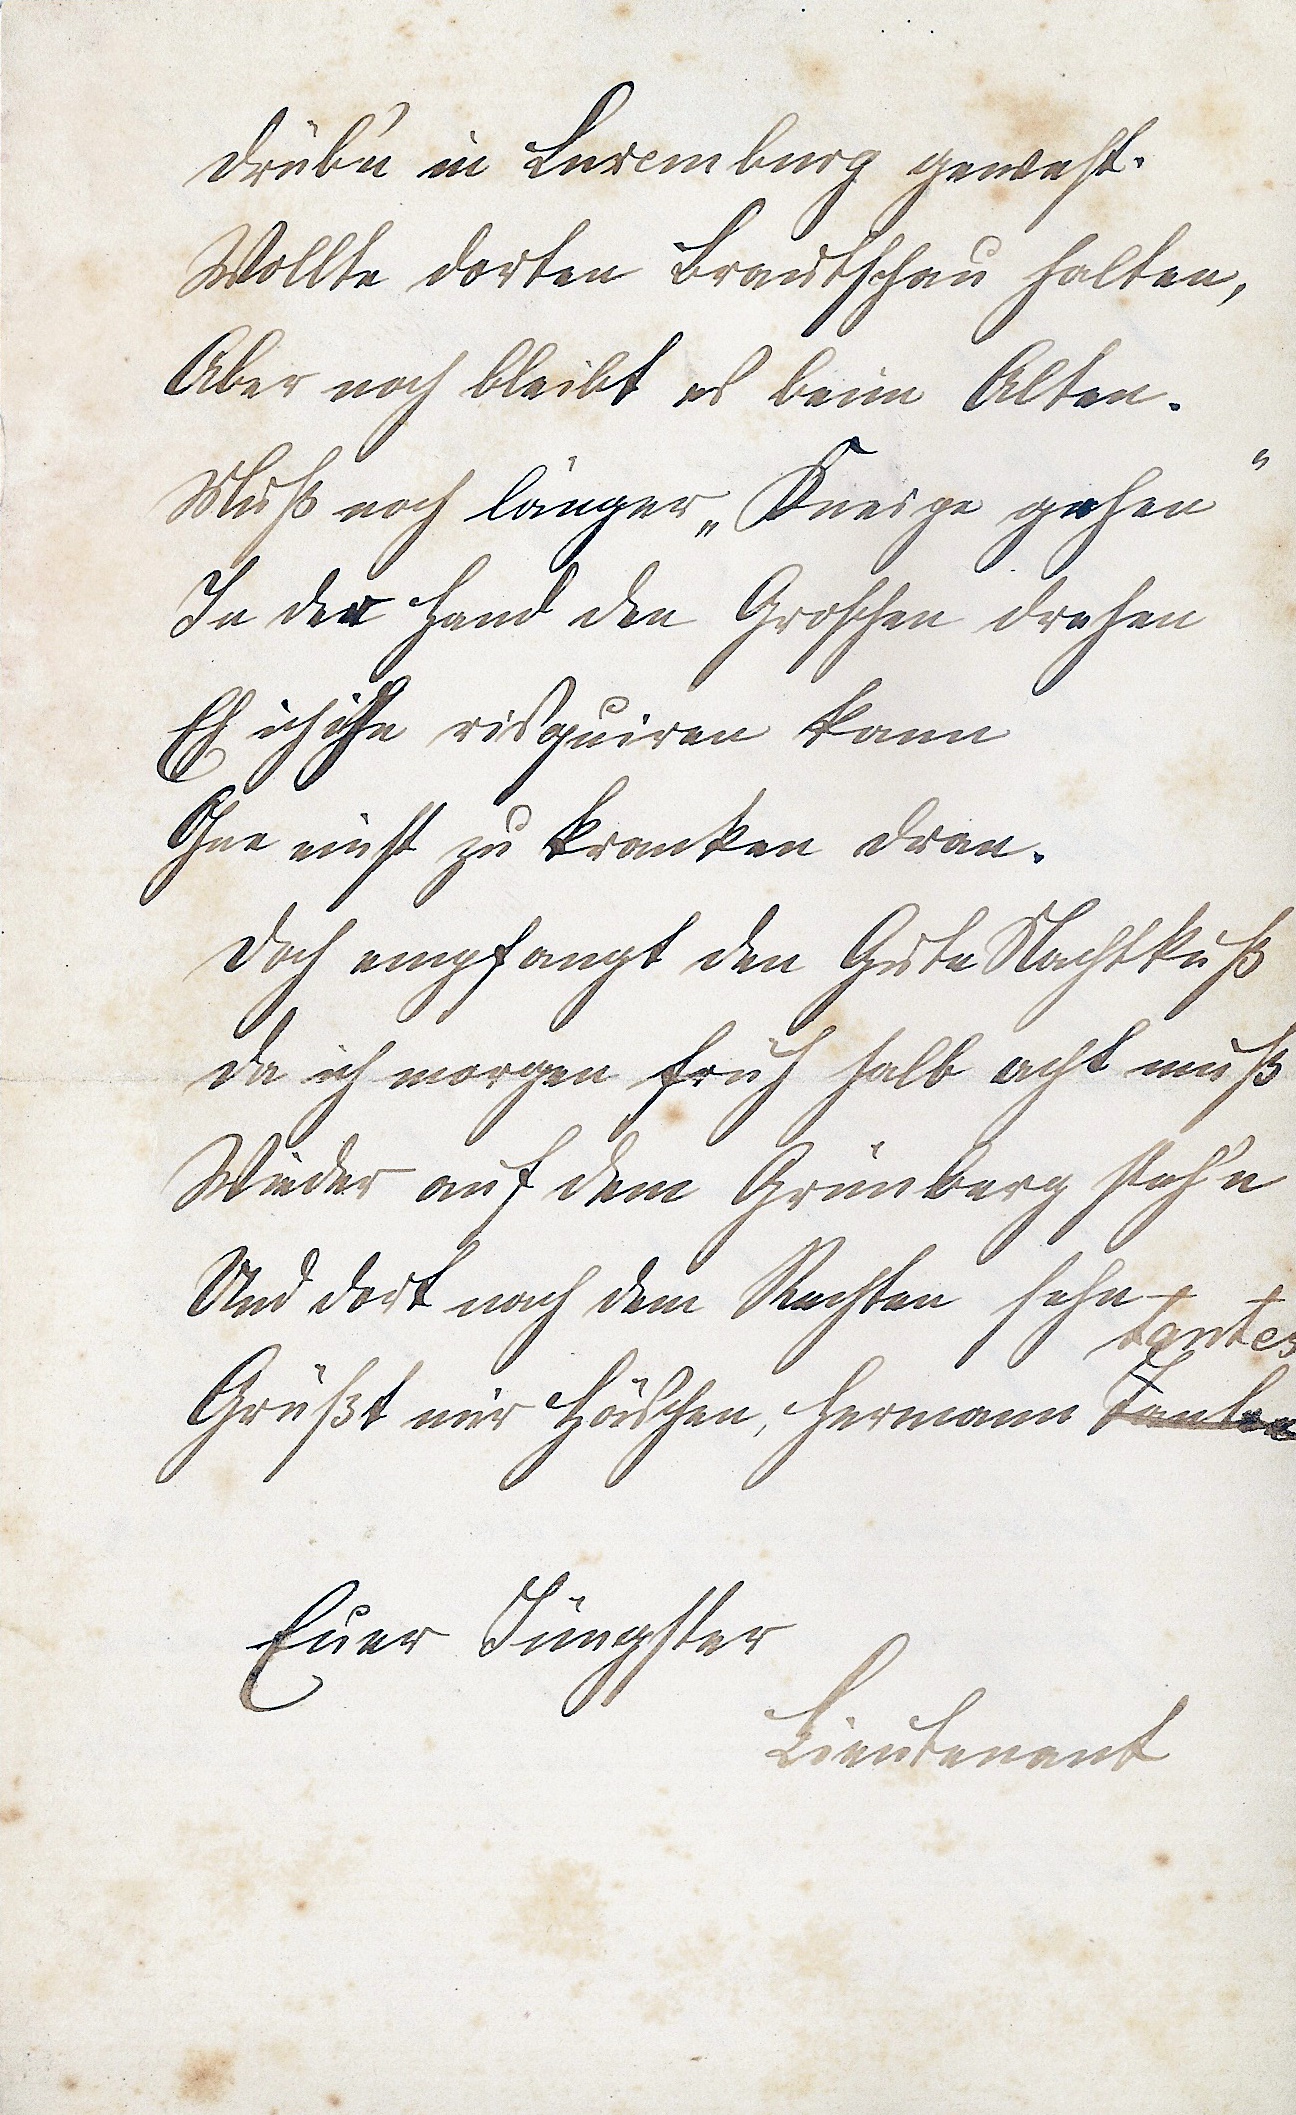 Drüb'n in Luxemburg gewest.
Wollte dorten Brautschau halten,
Aber noch bleibt es beim Alten.
Muß noch länger „Kneipe gehen“
In der Hand den Groschen drehen
Eh ich ihn risquiren kann
Ohne einst zu kranken dran.
Doch empfangt den Gute Nachtkuß
Da ich morgen früh halb acht muß
Wieder auf dem Grünberg steh'n
Und dort nach dem Rechten sehn
tantes
Grüßt mir Höschen, Hermann Tanten
Euer Jüngster
Lieutenant